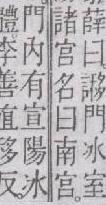 薛曰謻門冰室
諸宮名曰南宮
門內有宣陽冰
體李善直移反